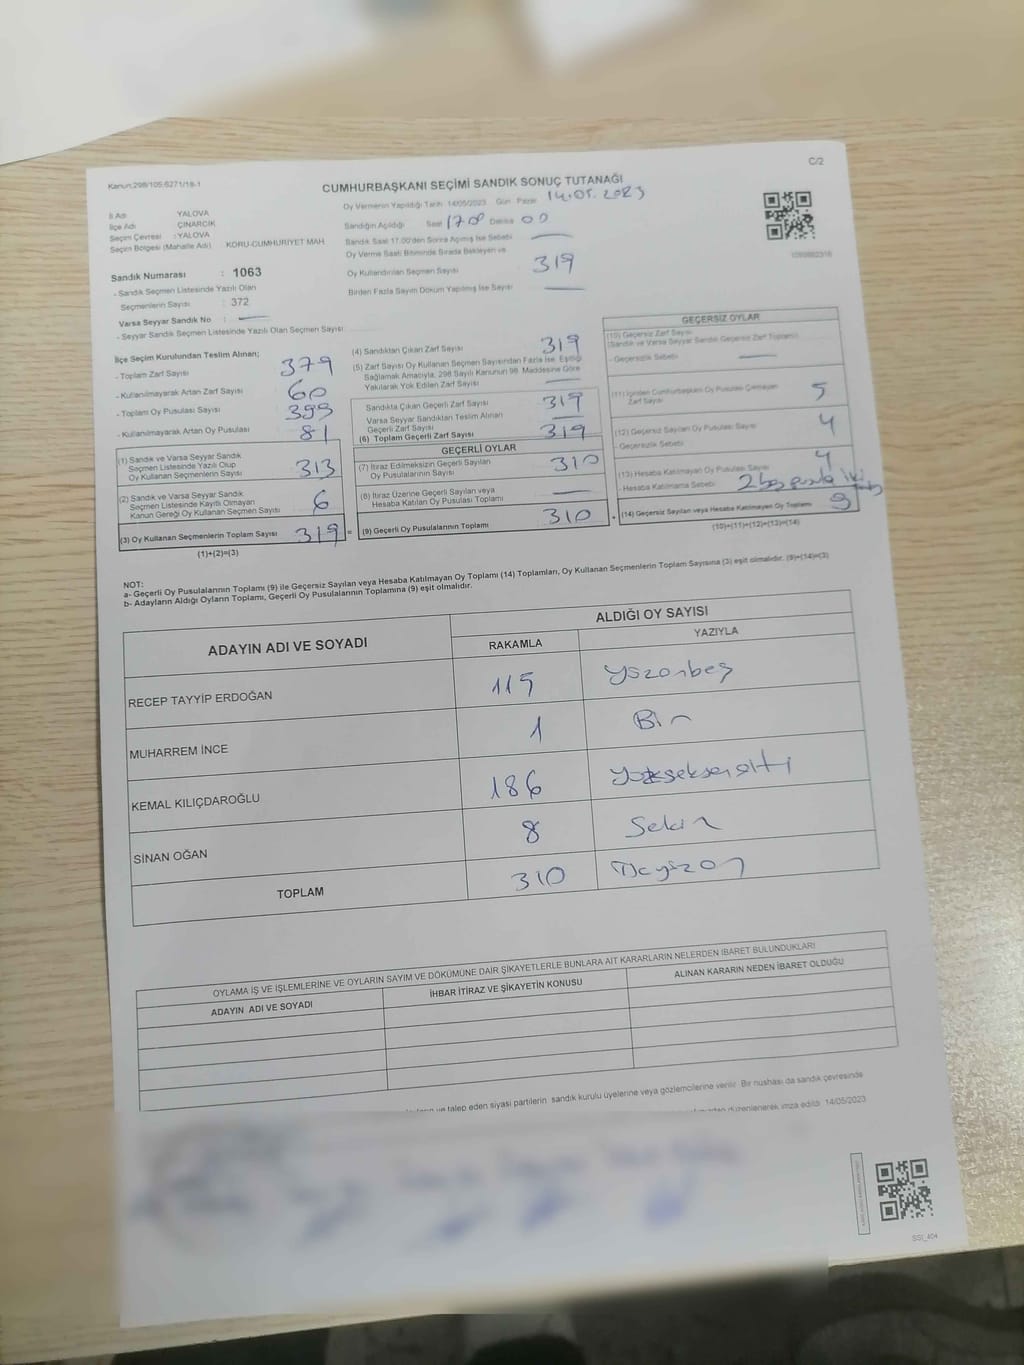 Kanun:298/105;6271/18-1
C/2
CUMHURBAŞKANI SEÇİMİ SANDIK SONUÇ TUTANAĞI
İl Adı YALOVA
İlçe Adı ÇINARCIK
Seçim Çevresi : YALOVA
Seçim Bölgesi (Mahalle Adı) KORU-CUMHURİYET MAH
Sandık Numarası : 1063
- Sandık Seçmen Listesinde Yazılı Olan
Seçmenlerin Sayısı : 372
Varsa Seyyar Sandık No : —
- Seyyar Sandık Seçmen Listesinde Yazılı Olan Seçmen Sayısı:
Oy Vermenin Yapıldığı Tarih 14/05/2023 Gün Pazar 14.05.2023
Sandığın Açıldığı Saat 17.00 Dakika 00
Sandık Saat 17.00'den Sonra Açılmış İse Sebebi —
Oy Verme Saati Bitiminde Sırada Bekleyen ve
Oy Kullandırılan Seçmen Sayısı 319
Birden Fazla Sayım Döküm Yapılmış İse Sayısı —
İlçe Seçim Kurulundan Teslim Alınan;
- Toplam Zarf Sayısı 379
- Kullanılmayarak Artan Zarf Sayısı 60
- Toplam Oy Pusulası Sayısı 399
- Kullanılmayarak Artan Oy Pusulası 81
(1) Sandık ve Varsa Seyyar Sandık
Seçmen Listesinde Yazılı Olup
Oy Kullanan Seçmenlerin Sayısı 313
(2) Sandık ve Varsa Seyyar Sandık
Seçmen Listesinde Kayıtlı Olmayan
Kanun Gereği Oy Kullanan Seçmen Sayısı 6
(3) Oy Kullanan Seçmenlerin Toplam Sayısı 319 =
(1)+(2)=(3)
(4) Sandıktan Çıkan Zarf Sayısı 319
(5) Zarf Sayısı Oy Kullanan Seçmen Sayısından Fazla İse, Eşitliği
Sağlamak Amacıyla, 298 Sayılı Kanunun 98. Maddesine Göre
Yakılarak Yok Edilen Zarf Sayısı —
Sandıkta Çıkan Geçerli Zarf Sayısı 319
Varsa Seyyar Sandıktan Teslim Alınan
Geçerli Zarf Sayısı —
(6) Toplam Geçerli Zarf Sayısı 319
GEÇERLİ OYLAR
(7) İtiraz Edilmeksizin Geçerli Sayılan
Oy Pusulalarının Sayısı 310
(8) İtiraz Üzerine Geçerli Sayılan veya
Hesaba Katılan Oy Pusulası Toplamı —
(9) Geçerli Oy Pusulalarının Toplamı 310 +
GEÇERSİZ OYLAR
(10) Geçersiz Zarf Sayısı
(Sandık ve Varsa Seyyar Sandık Geçersiz Zarf Toplamı)
- Geçersizlik Sebebi —
(11) İçinden Cumhurbaşkanı Oy Pusulası Çıkmayan
Zarf Sayısı 5
(12) Geçersiz Sayılan Oy Pusulası Sayısı 4
- Geçersizlik Sebebi
(13) Hesaba Katılmayan Oy Pusulası Sayısı 4
- Hesaba Katılmama Sebebi 2 boş pusula iki
(14) Geçersiz Sayılan veya Hesaba Katılmayan Oy Toplamı 9
(10)+(11)+(12)+(13)=(14)
NOT:
a- Geçerli Oy Pusulalarının Toplamı (9) ile Geçersiz Sayılan veya Hesaba Katılmayan Oy Toplamı (14) Toplamları, Oy Kullanan Seçmenlerin Toplam Sayısına (3) eşit olmalıdır. (9)+(14)=(3)
b- Adayların Aldığı Oyların Toplamı, Geçerli Oy Pusulalarının Toplamına (9) eşit olmalıdır.
ADAYIN ADI VE SOYADI
ALDIĞI OY SAYISI
RAKAMLA YAZIYLA
RECEP TAYYİP ERDOĞAN 115 Yüzonbeş
MUHARREM İNCE 1 Bir
KEMAL KILIÇDAROĞLU 186 Yüzseksenaltı
SİNAN OĞAN 8 Sekiz
TOPLAM 310 Üçyüzon
OYLAMA İŞ VE İŞLEMLERİNE VE OYLARIN SAYIM VE DÖKÜMÜNE DAİR ŞİKAYETLERLE BUNLARA AİT KARARLARIN NELERDEN İBARET BULUNDUKLARI
ADAYIN ADI VE SOYADI İHBAR İTİRAZ VE ŞİKAYETİN KONUSU ALINAN KARARIN NEDEN İBARET OLDUĞU
ve talep eden siyasi partilerin sandık kurulu üyelerine veya gözlemcilerine verilir. Bir nushası da sandık çevresinde
düzenlenerek imza edildi. 14/05/2023
SSI_404